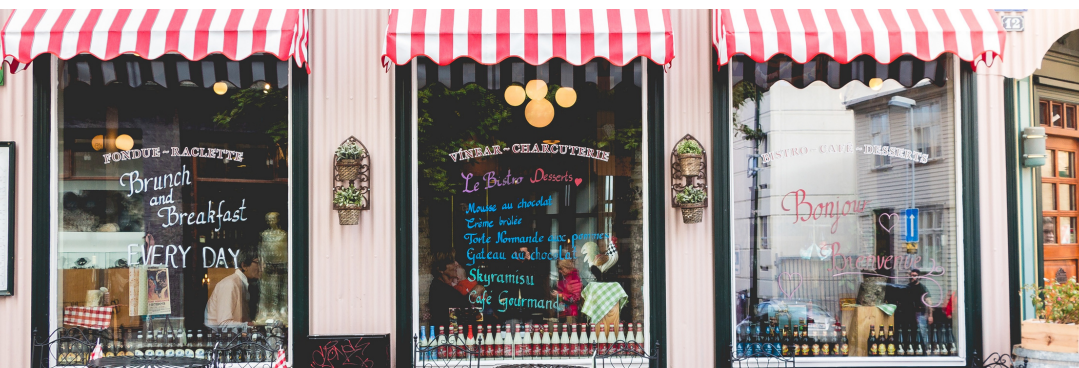 FONDUE ~ RACLETTE
Brunch
and
Breakfast
EVERY DAY
VÍNBAR ~ CHARCUTERIE
Le Bistro Desserts
Mousse au chocolat
Crème brûlée
Torte Normande aux pommes
Gateau au chocolat
Skyramisu
Café Gourmand
BISTRO ~ CAFE ~ DESSERTS
Bonjour
Bienvenue
12